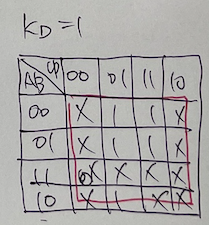 K_D = 1
AB CD 00 01 11 10
00 X 1 1 X
01 X 1 1 X
11 X X X X
10 X 1 X X